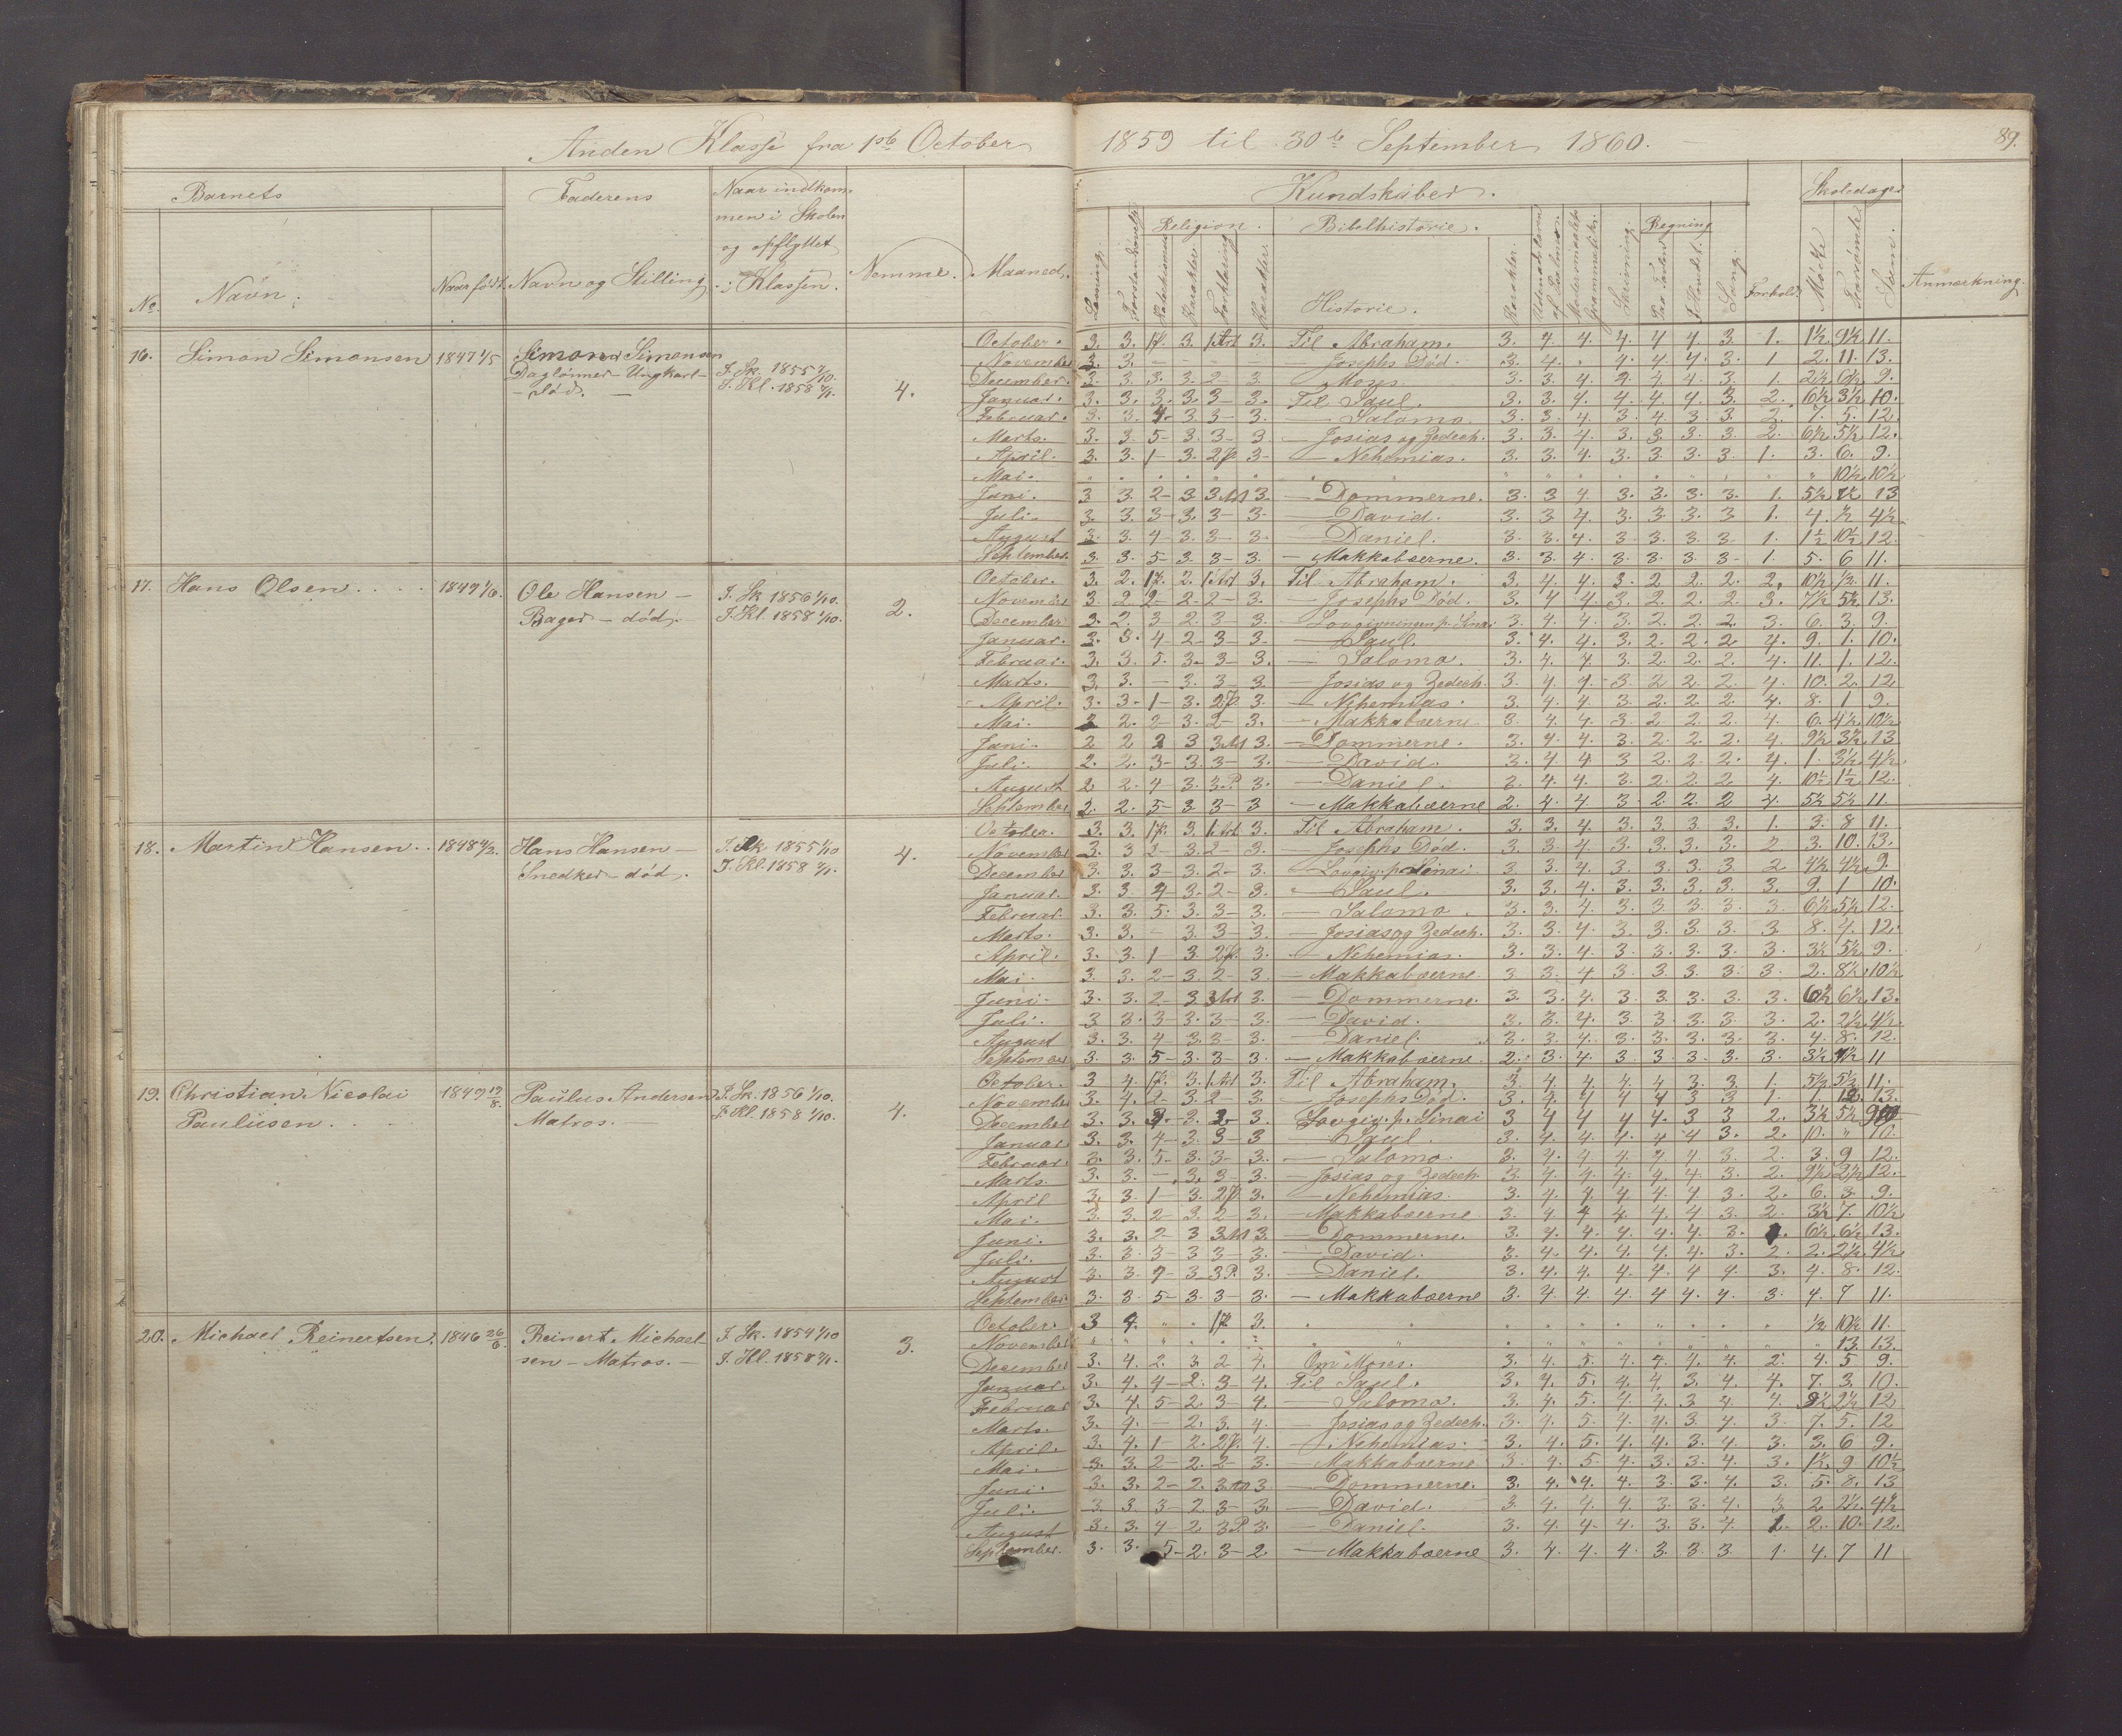 Anden Klasse fra 1ste October 1859 til 30te September 1860.
89.
Barnets
Faderens
Naar indkom-
men i Skolen
og opflyttet
i Klassen.
Nemme.
Maaned.
No.
Navn.
Naar født.
Navn og Stilling
Kundskaber.
Skoledage
Læsning.
Religion.
Bibelhistorie.
Regning
Karakter.
Forklaring
Karakter.
Historie.
Karakter.
Skrivning.
Sang.
Forhold.
Mødte
Forsømte
Sum.
Anmærkning.
16. Simon Simonsen 1847 1/5
Simon Simonsen
Daglønner - Ungkarl -
- død. -
4.
October. 3. 3. Til Abraham. 3. 4. 4. 4. 4. 4. 3. 1. 1½ 9½ 11.
November 3. 3. - Josephs Død. 3. 4. 4. 4. 4. 3. 1 2. 11. 13.
December. 3. 3. 3. 3. 2 - 3. - Moses
Januar. 3. 3. 3. 3. 3 - 3. Til Saul. 3. 3. 4. 4. 4. 4. 3. 2. 6½ 3½ 10.
Februar. 3. 3. 4 - 3 3 - 3. - Salomo 3. 3. 4. 3. 4. 3 3 2. 7. 5. 12.
Marts. 3. 3. 5 - 3. 3 - 3 - Josias og Zedech. 3. 3. 4. 3. 3. 3. 3 2. 6½ 5½ 12.
April. 3. 3. 1 - 3. 2 p. 3 - - Nehemias. 3. 3. 4. 3. 3. 3. 3 - 1. 3. 6. 9.
Mai. 10½ 10½
Juni. 3 3. 2 - 3 3 Art 3. - Dommerne. 3. 3 4. 3. 3. 3. 3. 1. 5½ 7½ 13
Juli. 3. 3. 3 - 3. 3 - 3. - David. 3. 3 4. 3. 3. 3. 3 1. 4. ½ 4½
August 3. 3. 4 - 3. 3 - 3. - Daniel. 3. 3. 4. 3. 3. 3. 3. 1. 1½ 10½ 12.
September. 3 3. 5 - 3. 3 - 3. - Makkabæerne. 3. 3. 4. 3. 3. 3. 3 - 1. 5. 6 11.
17. Hans Olsen
Ole Hansen -
Bager - død.
J. Sk. 1856 1/10.
J. Kl. 1858 1/10.
2.
October. 3. 2. 2. 3. Til Abraham. 3. 4. 4. 3. 2. 2. 2. 2. 10½ ½ 11.
November 3. 2. 2 - 2 - 2 - 3. - Josephs Død. 3. 4 4. 3. 2. 2. 2. 3. 7½ 5½ 13.
December 3. 2. 3 - 2. 3 - 3. - Lovgivningen p. Sinai 3. 4. 4. 3. 2. 2 2. 3. 6. 3. 9.
Januar. 3. 3. 4 - 2 - 3 - 3 - Saul. 3. 4. 4. 3. 2. 2. 2 4. 9. 1. 10.
Februar. 3. 3. 5. 3. 3 - 3. - Salomo. 3. 4. 4. 3. 2. 2. 2. 4. 11. 1. 12.
Marts. 3. 3. - 3. 3 - 3. - Josias og Zedech. 3. 4. 4. 3. 2 2. 2. 4. 10. 2. 12
April. 3. 3. 1 - 3. 2 p. 3. - Nehemias. 3. 4. 4. 3. 2. 2. 2 4. 8. 1 9.
Mai. 2 2. 2 - 3. 2 - 3. - Makkabæerne 3. 4. 4. 3. 2 2. 2. 4. 6. 4½ 10½
Juni. 2 2 2 3 3 Art 3. - Dommerne. 3. 4. 4. 3. 2. 2. 2. 4. 9½ 3½ 13
Juli. 2. 2. 3 - 3. 3 - 3. - David. 3. 4. 4 3 2. 2. 2. 4. 1. 3½ 4½
August 2 2. 4 3. 3. P 3. - Daniel. 3. 4. 4. 3. 2. 2. 2 4. 10½ 1½ 12.
September 2. 2. 5 - 3 3 - 3 - Makkabæerne 2. 4. 4. 3. 2. 2. 2 4. 5½ 5½ 11.
18. Martin Hansen
Hans Hansen -
Snedker - død.
J. Sk. 1855 1/10
4.
October. 3. 3. 3. 1 Art. 3. Til Abraham. 3. 3. 4. 3. 3. 3. 3. 1. 3. 8 11.
November 3. 3 2 - 3. 2 - 3. - Josephs Død. 3. 3. 4. 3. 3. 3. 3. 2. 3. 10. 13.
December 3. 3. 3 - 3. 2 - 3. Lovgiv. p. Sinai 3 3. 4. 3. 3. 3. 3. 2 4½ 4½ 9.
Januar. 3 3. 4 3. 2 - 3. - Saul. 3. 3. 4. 3. 3. 3. 3. 3. 9. 1 10.
Februar. 3. 3. 5. 3. 3 - 3. - Salomo. 3. 3. 4. 3. 3. 3. 3. 3. 6½ 5½ 12.
Marts. 3. 3. - 3. 3 - 3. - Josias og Zedech. 3. 3. 4. 3. 3. 3. 3. 3 8. 4. 12.
April. 3. 3. 1 - 3. 2 p. 3. - Nehemias. 3. 3. 4. 3. 3. 3. 3. 3. 3½ 5½ 9.
Mai. 3 3. 2 - 3. 2 - 3. - Makkabæerne 3. 3. 4 3. 3. 3. 3. 3. 2. 8½ 10½
Juni. 3. 3. 2 - 3 3 Art 3. - Dommerne. 3. 3. 4. 3. 3. 3. 3. 3. 6½ 6½ 13.
Juli. 3 3. 3 - 3. 3 - 3. - David. 3. 3. 4. 3. 3. 3. 3. 3. 2. 2½ 4½
August 3. 3. 4 - 3. 3 - 3. - Daniel. 3. 3. 4. 3. 3. 3. 3. 3. 4. 8. 12.
September 3. 3. 5 - 3. 3 - 3. - Makkabæerne 2. 3. 4. 3. 3. 3. 3. 3. 3½ 7½ 11
19. Christian Nicolai
Paulusen
1849 19/8.
Paulus Andersen
Matros. -
J. Sk. 1856 1/10.
J. Kl. 1858 1/10.
4.
October. 3 4. 3. 1 Art 3. Til Abraham. 3. 4. 4. 4. 4 3. 3. 1. 5½ 5½ 11.
November 3. 4. 2 - 3. 2 - 3. - Josephs Død. 3. 4. 4. 4. 4 3 3 1. 1. 12. 13.
December 3. 3. 3. 3. - Lovgiv. p. Sinai 3 4 4 4 4. 3 3 2. 3½ 5½ 9
Januar 3. 3. 4 - 3. 3 - 3 - Saul. 3. 4. 4. 4. 4 4 3. 2. 10. " 10.
Februar. 3. 3. 5 - 3. 3 - 3. - Salomo. 3. 4. 4. 4. 4. 4 3. 2. 3. 9 12.
Marts. 3. 3. - 3. 3 - 3. - Josias og Zedech 3. 4. 4. 4. 4. 4. 3. 2. 9½ 2½ 12.
April 3. 3. 1 - 3. 2 p. 3. - Nehemias. 3. 4. 4. 4. 4. 4 3. 2. 6. 3. 9.
Mai. 3. 3. 2 - 3. 2 - 3. - Makkabæerne 3. 4 4 4. 4. 4 3. 2. 3½ 7. 10½
Juni. 3. 3. 2 - 3 3 Art 3. - Dommerne. 3. 4. 4. 4. 4. 4. 3. 6½ 6½ 13.
Juli. 3. 3. 3 - 3 3 - 3. - David. 3. 4. 4. 4. 4. 4. 3. 2. 2. 2½ 4½
August 3. 3. 4 - 3 3 P. 3. - Daniel. 3. 4. 4. 4. 4. 4 4. 3. 4. 8. 12.
September. 3. 3. 5 - 3. 3 - 3. - Makkabæerne 3. 4. 4. 4. 4. 4. 4. 3. 4. 7 11.
20. Michael Reinertsen. 1846 26/6.
Reinert Michael-
sen - Matros. -
J. Sk. 1854 1/10
3.
October. 3 4. " " 3. ½ 10½ 11
November 13. 13.
December 3. 4. 2. 3. 2 4. Om Moses. 3. 4. 5. 4. 4. 4. 4. 2. 4. 5 9.
Januar. 3. 4. 4 - 2. 3 - 4. Til Saul. 3. 4. 5. 4. 4. 3. 4. 4. 7. 3. 10.
Februar 3. 4. 5 - 2. 3 - 4. - Salomo. 3. 4. 5. 4. 4. 3 4. 4. 9½ 2½ 12
Marts. 3. 4. - 2. 3. 4. - Josias og Zedech. 3. 4. 5. 4. 4. 3. 4. 3. 7. 5. 12
April. 3. 4. 1 - 2. 2 p. 4. - Nehemias. 3. 4. 5. 4. 4. 3. 4. 3. 3. 6 9.
Mai. 3. 3. 2 - 2. 2 - 3. - Makkabæerne 3. 4. 5. 4. 3. 3. 4. 3. 1½ 9 10½
Juni. 3. 3. 2 - 2. 3 Art 3. - Dommerne. 3. 4. 4. 4. 3. 3. 4. 3. 5. 8. 13
Juli. 3. 3. 3 - 2. 3 - 3. - David. 3. 4. 4. 4. 3. 3. 4. 3. 2. 2½ 4½
August 3. 3. 4 - 2. 3 P 3. - Daniel. 3. 4. 4. 4. 3. 3. 4. 1. 2. 10. 12.
September. 3. 3. 5 - 2. 3 - 2. - Makkabæerne 3. 4. 4. 4. 3. 3. 3. 1. 4. 7 11